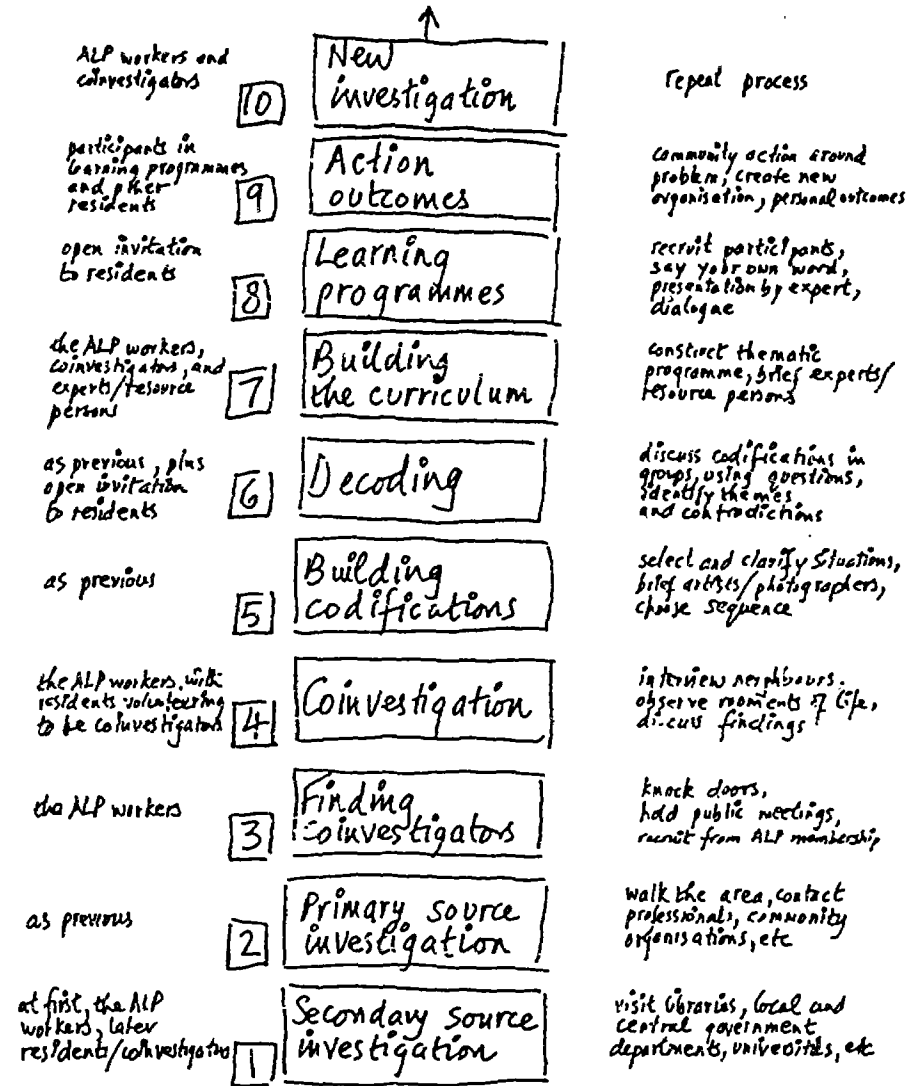 ALP workers and
coinvestigators
10
New
investigation
repeat process
participants in
learning programmes
and other
residents
9
Action
outcomes
community action around
problem, create new
organisation, personal outcomes
open invitation
to residents
8
Learning
programmes
recruit participants,
say your own word,
presentation by expert,
dialogue
the ALP workers,
coinvestigators, and
experts/resource
persons
7
Building
the curriculum
construct thematic
programme, brief experts/
resource persons
as previous, plus
open invitation
to residents
6
Decoding
discuss codifications in
groups, using questions,
identify themes
and contradictions
as previous
5
Building
codifications
select and clarify situations,
brief artists/photographers,
choose sequence
the ALP workers, with
residents volunteering
to be coinvestigators
4
Coinvestigation
interview neighbours.
observe moments of life,
discuss findings
the ALP workers
3
Finding
coinvestigators
knock doors,
hold public meetings,
recruit from ALP membership
as previous
2
Primary source
investigation
walk the area, contact
professionals, community
organisations, etc
at first, the ALP
workers, later
residents/coinvestigators
1
Secondary source
investigation
visit libraries, local and
central government
departments, univesities, etc